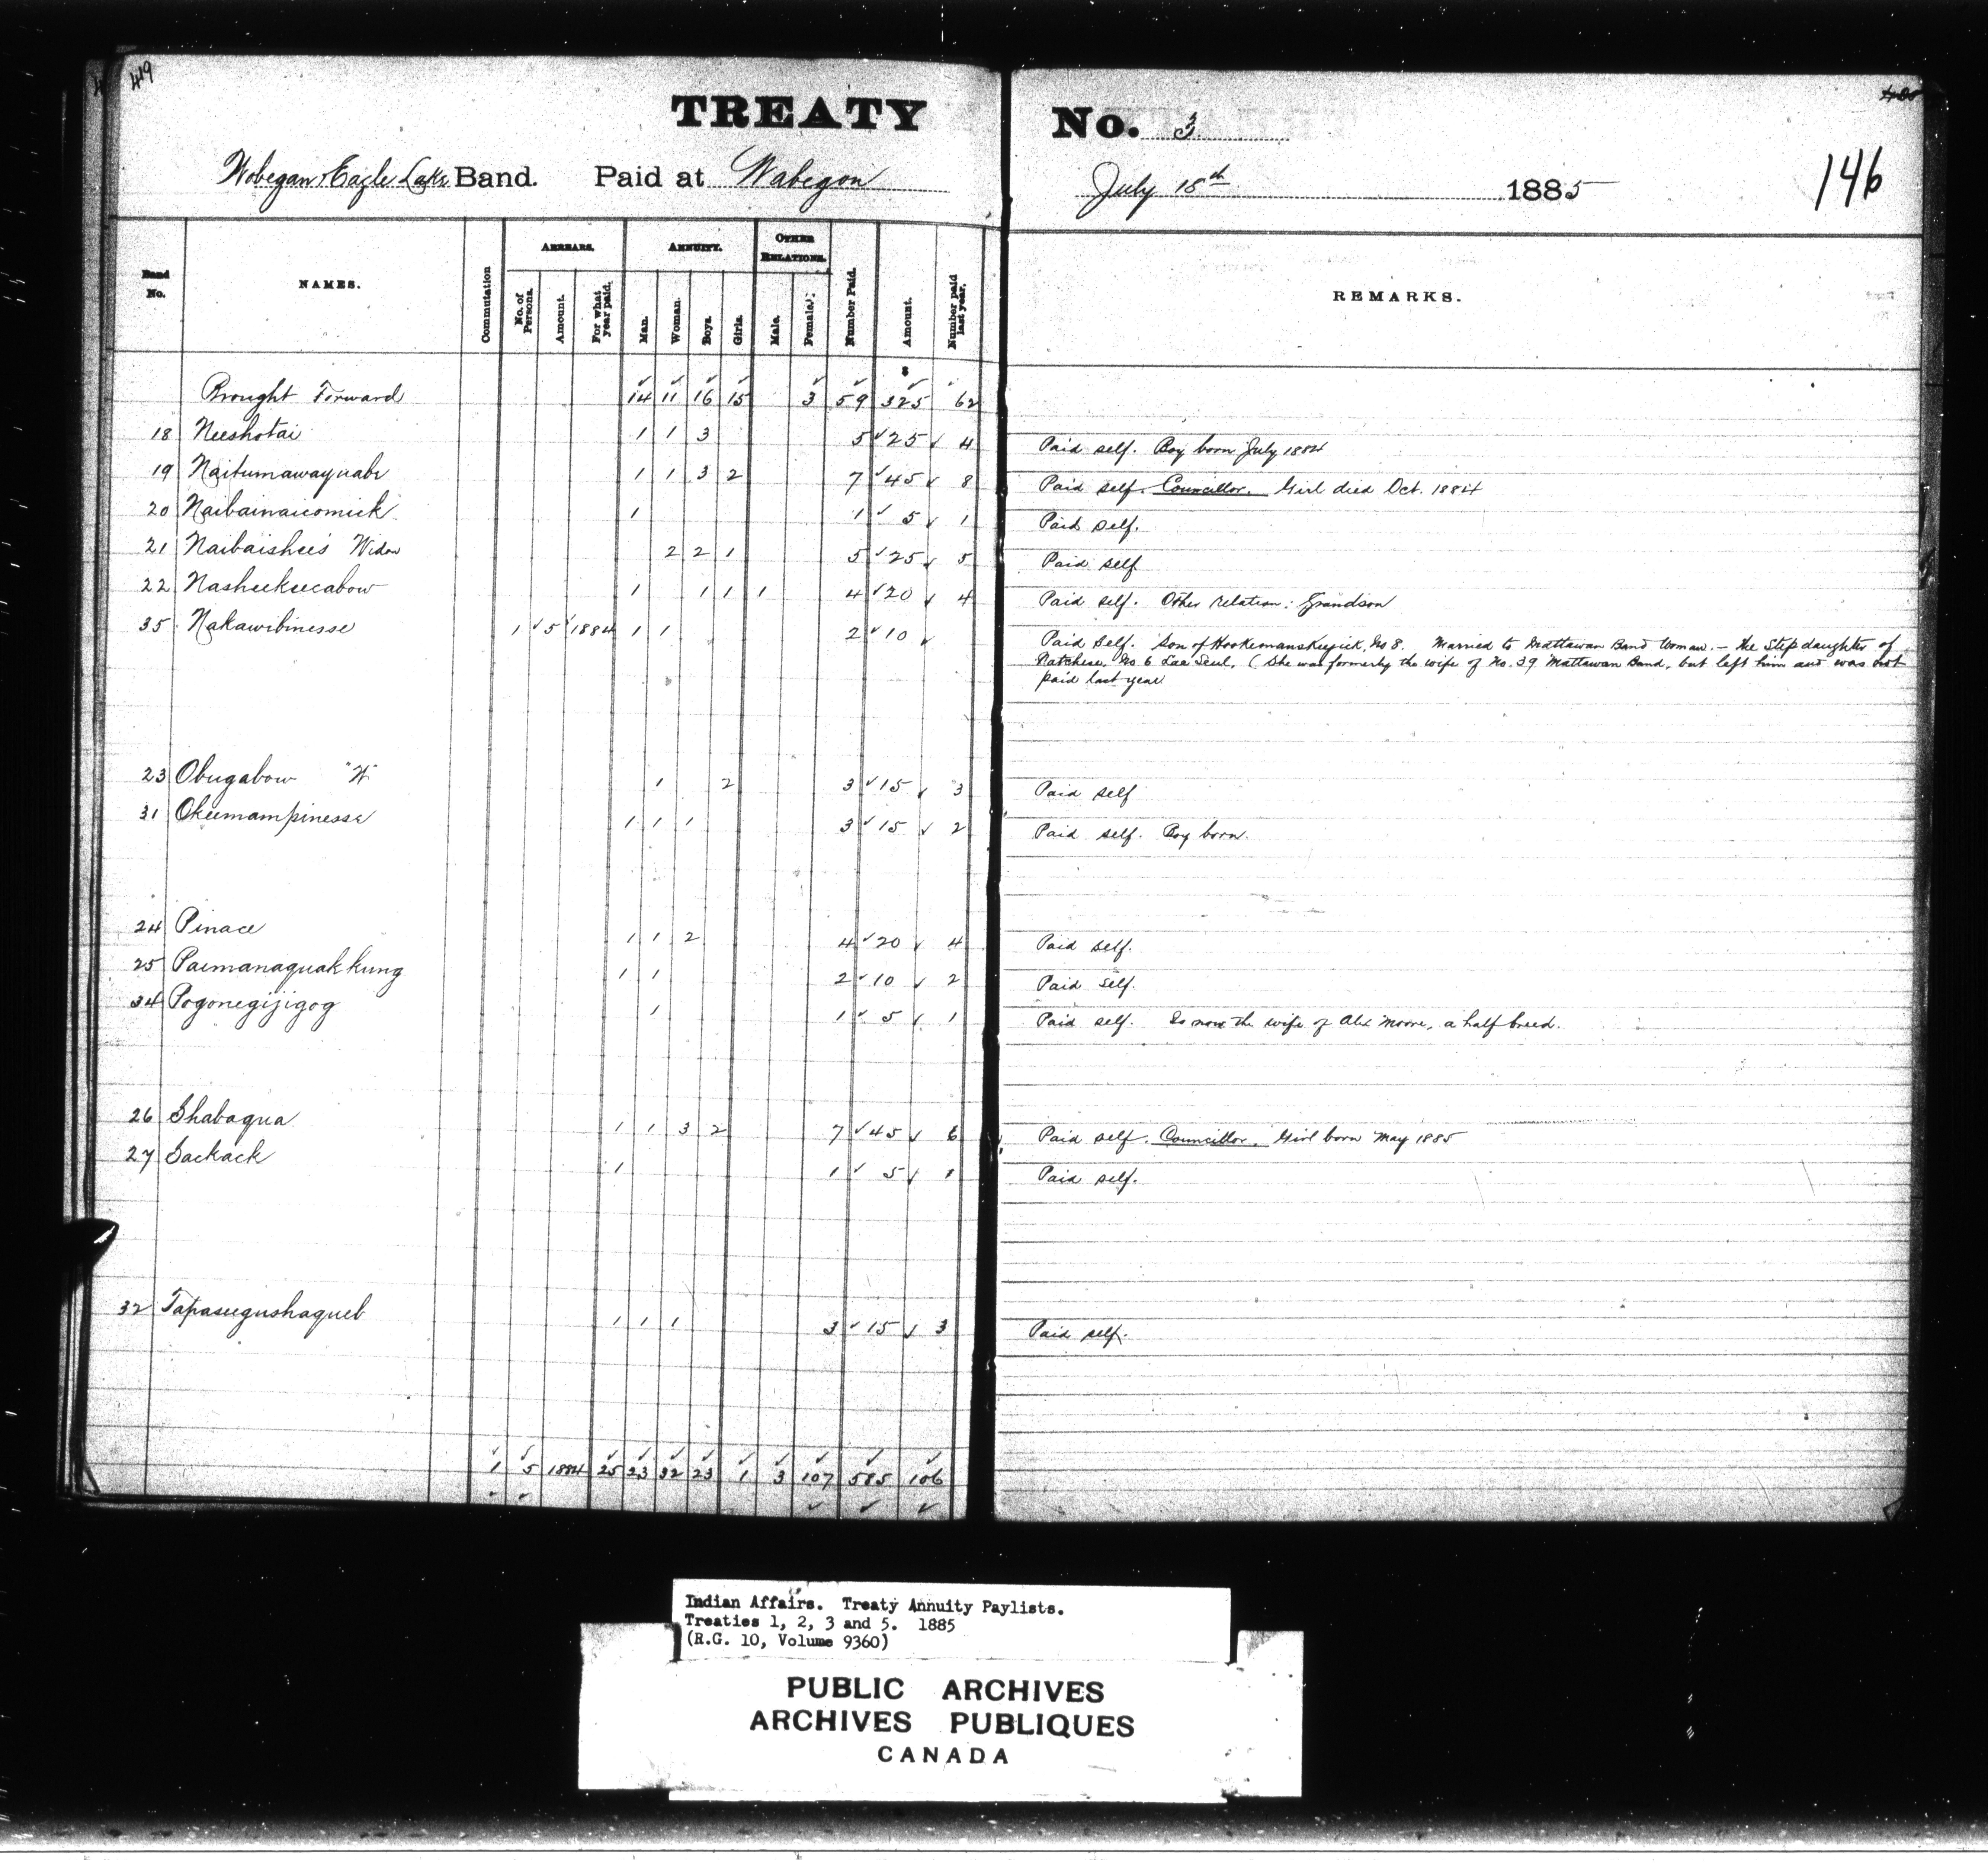 419
TREATY No. 3
146
Wobegan & Eagle Lake Band. Paid at Wabegon July 18th 1885
Band No. NAMES. Commutation ARREARS. No. of Persons. Amount. For what year paid. ANNUITY. Man. Woman. Boys. Girls. OTHER RELATIONS. Male. Female. Number Paid. Amount. Number paid last year. REMARKS.
$
Brought Forward 14 11 16 15 3 59 325 62
18 Neeshotai 1 1 3 5 25 4 Paid self. Boy born July 1884
19 Naitumawayuabe 1 1 3 2 7 45 8 Paid self. Councillor. Girl died Oct. 1884
20 Naibainaicomick 1 1 5 1 Paid self.
21 Naibaishee's Widow 2 2 1 5 25 5 Paid self
22 Nasheekeecabow 1 1 1 1 4 20 4 Paid self. Other relation: Grandson
35 Nakawibinesse 1 5 1884 1 1 2 10 Paid Self. Son of Hookemanskeejick, No 8. Married to Mattawan Band Woman. – the Stepdaughter of
Natchese, No. 6 Lac Seul. (She was formerly the wife of No. 39 Mattawan Band, but left him and was not
paid last year
23 Obugabow "W" 1 2 3 15 3 Paid self
31 Okeemampinesse 1 1 1 3 15 2 Paid self. Boy born.
24 Pinace 1 1 2 4 20 4 Paid self.
25 Paimanaquakkung 1 1 2 10 2 Paid self.
34 Pogonegijigog 1 1 5 1 Paid self. Is now the wife of Alex Moore, a half breed.
26 Shabaqua 1 1 3 2 7 45 6 Paid self. Councillor. Girl born May 1885
27 Sackack 1 1 5 1 Paid self.
32 Tapaseegushaqueb 1 1 1 3 15 3 Paid self.
1 5 1884 25 23 32 23 1 3 107 585 106
Indian Affairs. Treaty Annuity Paylists.
Treaties 1, 2, 3 and 5. 1885
(R.G. 10, Volume 9360)
PUBLIC ARCHIVES
ARCHIVES PUBLIQUES
CANADA